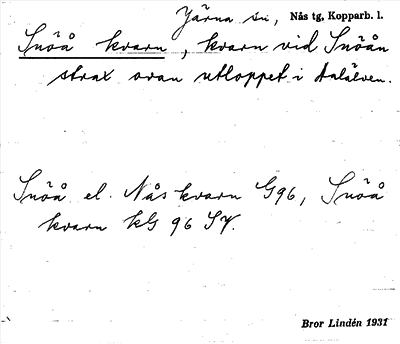 Järna sn, Nås tg, Kopparb. l.
Snöå kvarn, kvarn vid Snöån
strax ovan utloppet i Dalälven.
Snöå el. Nås kvarn G96, Snöå
kvarn kG 96 SV.
Bror Lindén 1931